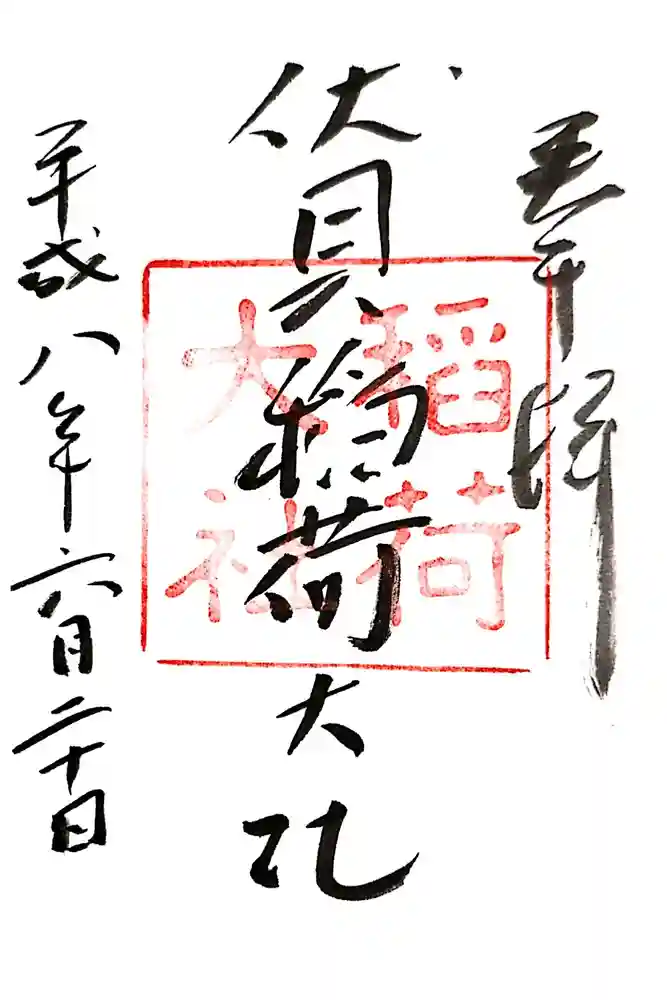 奉拝
伏見稲荷大社
稲荷
大社
平成八年六月二十日